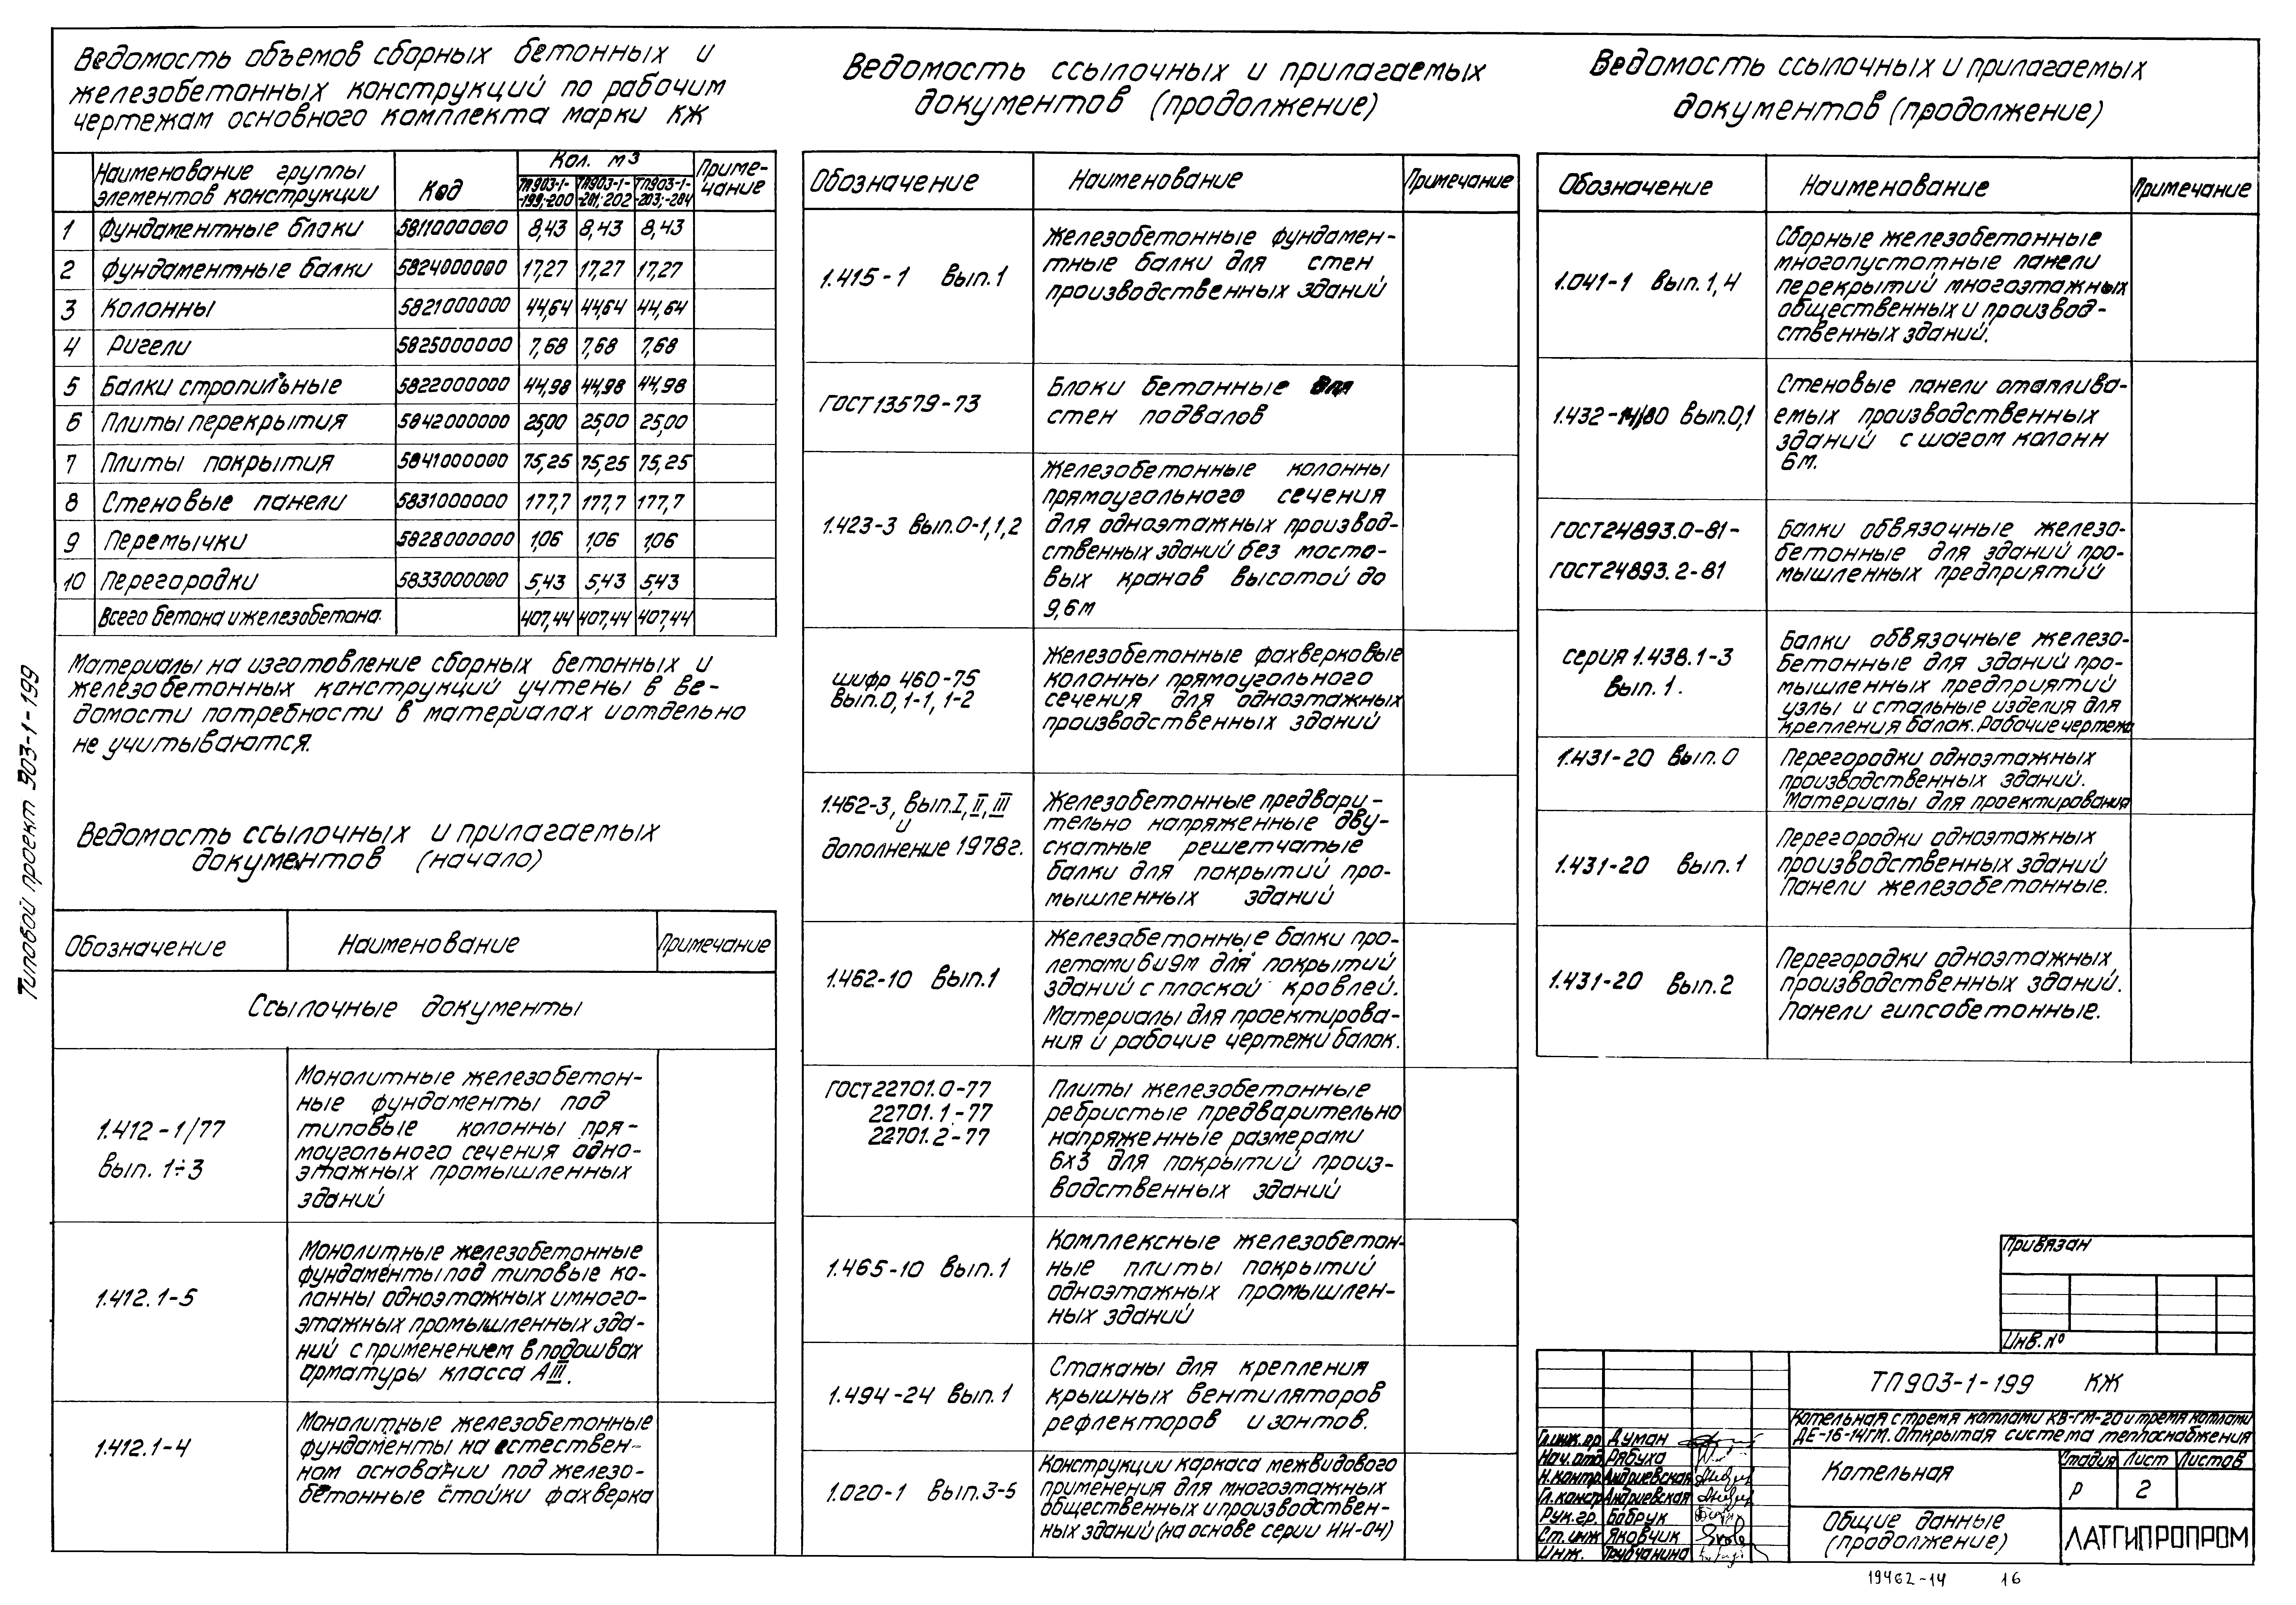 Ведомость объемов сборных бетонных и
железобетонных конструкций по рабочим
чертежам основного комплекта марки КЖ
Наименование группы элементов конструкции Код Кол. м3 Примечание
ТП903-1-199;-200 ТП903-1-201;-202 ТП903-1-203;-204
1 Фундаментные блоки 5811000000 8,43 8,43 8,43
2 Фундаментные балки 5824000000 17,27 17,27 17,27
3 Колонны 5821000000 44,64 44,64 44,64
4 Ригели 5825000000 7,68 7,68 7,68
5 Балки стропильные 5822000000 44,98 44,98 44,98
6 Плиты перекрытия 5842000000 25,00 25,00 25,00
7 Плиты покрытия 5841000000 75,25 75,25 75,25
8 Стеновые панели 5831000000 177,7 177,7 177,7
9 Перемычки 5828000000 1,06 1,06 1,06
10 Перегородки 5833000000 5,43 5,43 5,43
Всего бетона и железобетона. 407,44 407,44 407,44
Материалы на изготовление сборных бетонных и
железобетонных конструкций учтены в ве-
домости потребности в материалах и отдельно
не учитываются.
Ведомость ссылочных и прилагаемых
документов (начало)
Обозначение Наименование Примечание
Ссылочные документы
1.412-1/77
вып. 1÷3
Монолитные железобетон-
ные фундаменты под
типовые колонны пря-
моугольного сечения одно-
этажных промышленных
зданий
1.412.1-5
Монолитные железобетонные
фундаменты под типовые ко-
лонны одноэтажных и много-
этажных промышленных зда-
ний с применением в подошвах
арматуры класса АIII.
1.412.1-4
Монолитные железобетонные
фундаменты на естествен-
ном основании под железо-
бетонные стойки фахверка
Ведомость ссылочных и прилагаемых
документов (продолжение)
Обозначение Наименование Примечание
1.415-1 вып.1
Железобетонные фундамен-
тные балки для стен
производственных зданий
ГОСТ 13579-73
Блоки бетонные для
стен подвалов
1.423-3 вып.0-1,1,2
Железобетонные колонны
прямоугольного сечения
для одноэтажных производ-
ственных зданий без мосто-
вых кранов высотой до
9,6м
шифр 460-75
вып.0, 1-1, 1-2
Железобетонные фахверковые
колонны прямоугольного
сечения для одноэтажных
производственных зданий
1.462-3, вып.I, II, III
и
дополнение 1978г.
Железобетонные предвари-
тельно напряженные дву-
скатные решетчатые
балки для покрытий про-
мышленных зданий
1.462-10 вып.1
Железобетонные балки про-
летами 6 и 9м для покрытий
зданий с плоской кровлей.
Материалы для проектирова-
ния и рабочие чертежи балок.
ГОСТ 22701.0-77
22701.1-77
22701.2-77
Плиты железобетонные
ребристые предварительно
напряженные размерами
6х3 для покрытий произ-
водственных зданий
1.465-10 вып.1
Комплексные железобетон-
ные плиты покрытий
одноэтажных промышлен-
ных зданий
1.494-24 вып.1
Стаканы для крепления
крышных вентиляторов
рефлекторов и зонтов.
1.020-1 вып.3-5
Конструкции каркаса межвидового
применения для многоэтажных
общественных и производствен-
ных зданий (на основе серии ИИ-04)
Ведомость ссылочных и прилагаемых
документов (продолжение)
Обозначение Наименование Примечание
1.041-1 вып.1,4
Сборные железобетонные
многопустотные панели
перекрытий многоэтажных
общественных и производ-
ственных зданий.
1.432-14/80 вып.0,1
Стеновые панели отаплива-
емых производственных
зданий с шагом колонн
6м.
ГОСТ 24893.0-81-
ГОСТ 24893.2-81
Балки обвязочные железо-
бетонные для зданий про-
мышленных предприятий
серия 1.438.1-3
вып. 1.
Балки обвязочные железо-
бетонные для зданий про-
мышленных предприятий
узлы и стальные изделия для
крепления балок. Рабочие чертежи
1.431-20 вып.0
Перегородки одноэтажных
производственных зданий.
Материалы для проектирования
1.431-20 вып.1
Перегородки одноэтажных
производственных зданий
Панели железобетонные.
1.431-20 вып.2
Перегородки одноэтажных
производственных зданий.
Панели гипсобетонные.
Привязан
Инв.№
ТП903-1-199 КЖ
Котельная с тремя котлами КВ-ГМ-20 и тремя котлами
ДЕ-16-14ГМ. Открытая система теплоснабжения
Гл.инж.пр Думан
Нач.отд. Рябуха
Н.контр. Андриевская
Гл.констр Андриевская
Рук.гр. Бобрук
Ст.инж Яковчик
Инж. Трубчанина
Котельная
Стадия Лист Листов
Р 2
Общие данные
(продолжение)
ЛАТГИПРОПРОМ
19462-14 16
Типовой проект 903-1-199